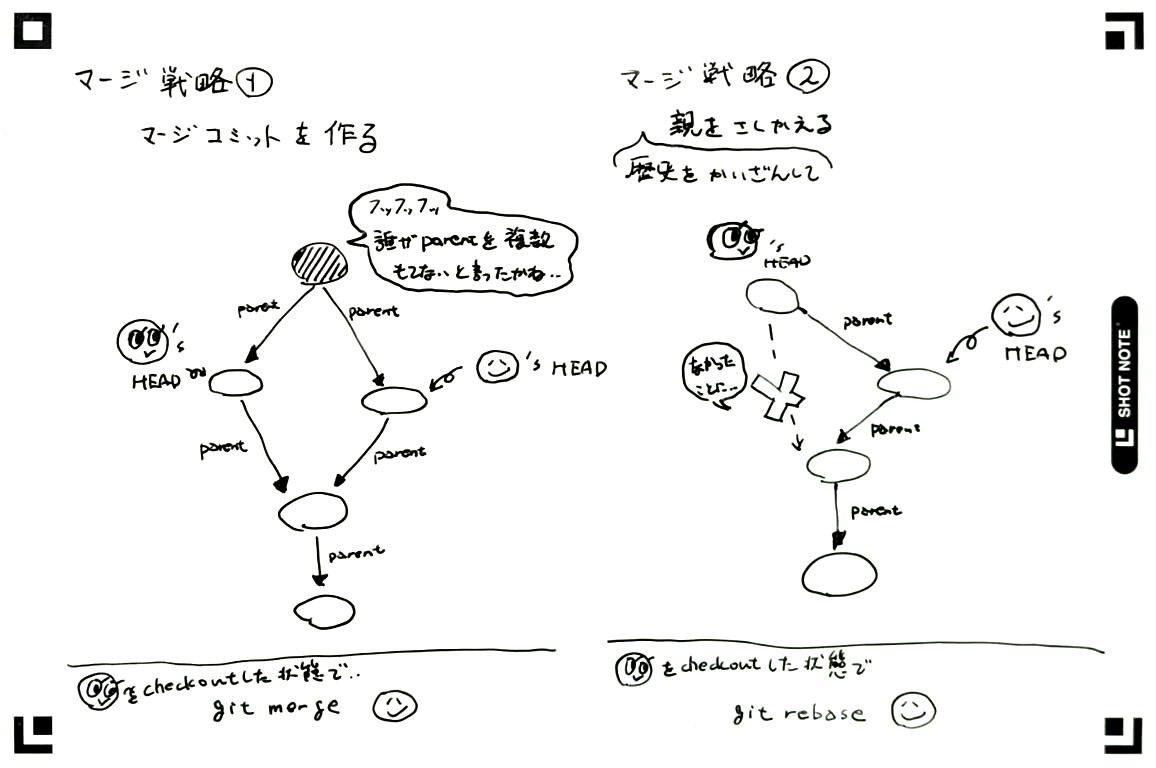 マージ戦略①
マージコミットを作る
フッフッフッ
誰がparentを複数
もてないと言ったかね..
parent
parent
's
HEAD
's HEAD
parent
parent
parent
をcheckoutした状態で..
git merge
マージ戦略②
親をさしかえる
歴史をかいざんして
's
HEAD
parent
's
HEAD
なかった
ことに...
parent
parent
をcheckoutした状態で
git rebase
SHOT NOTE